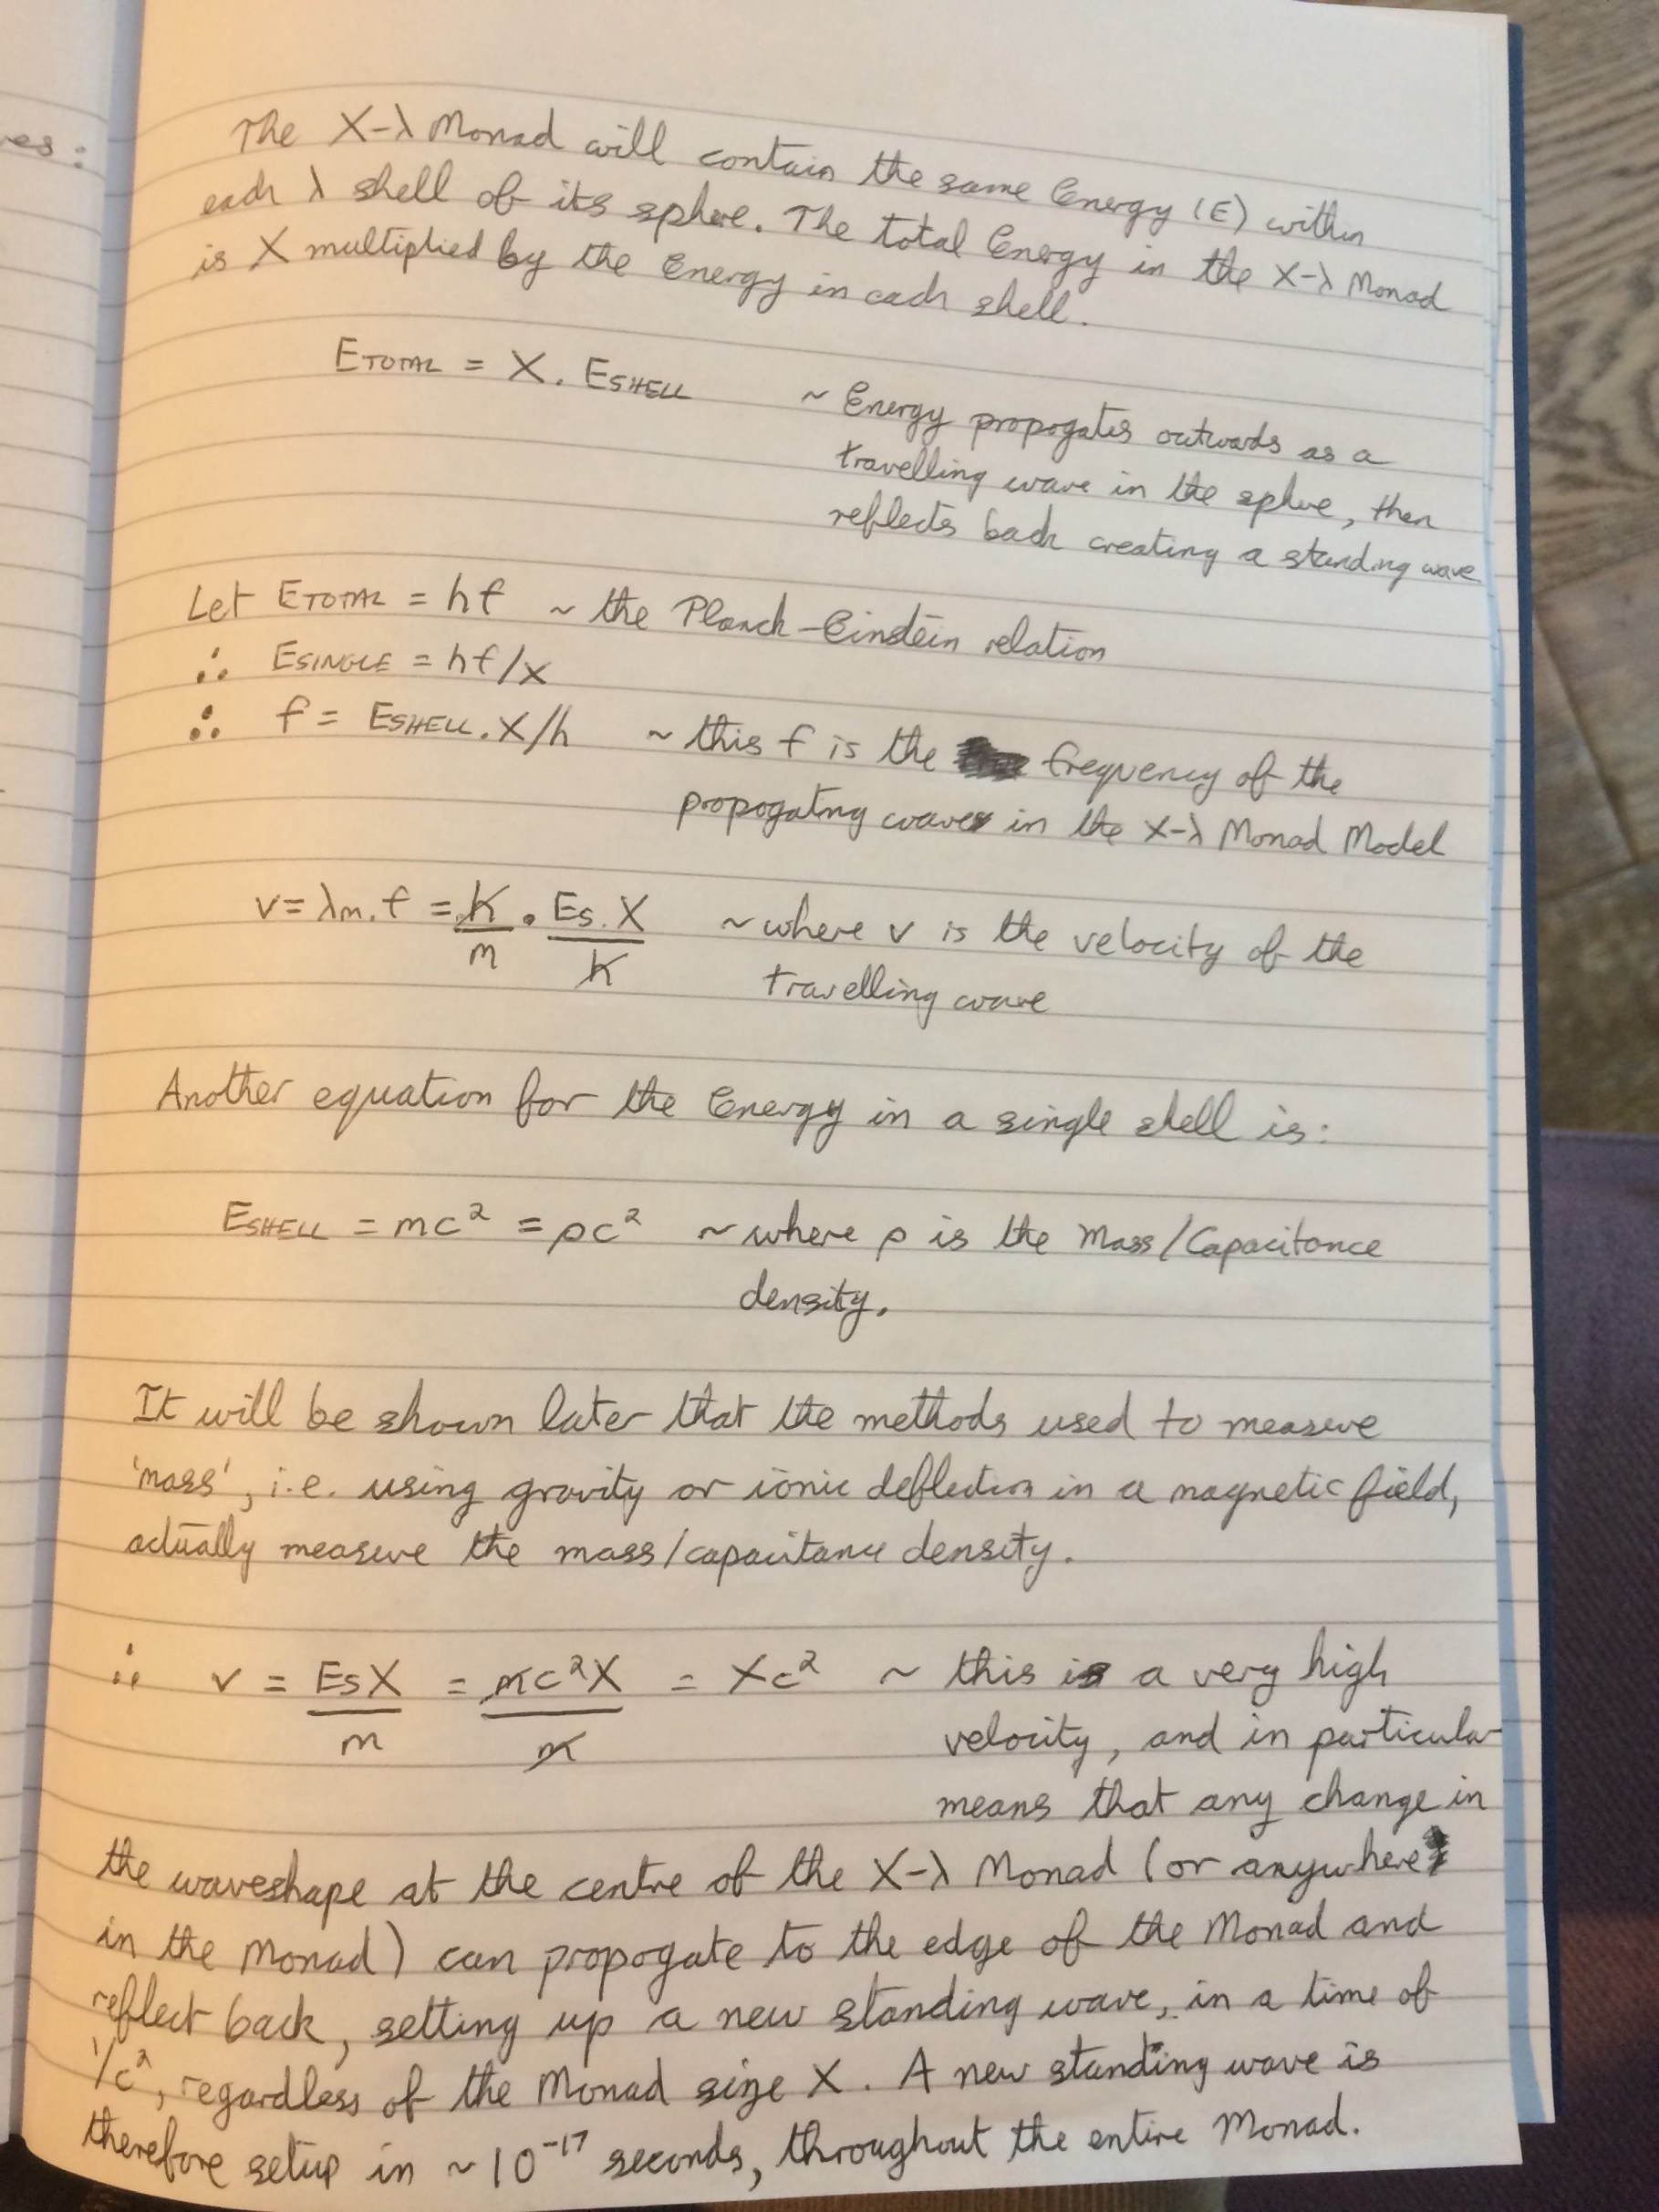 es:
The X-λ Monad will contain the same Energy (E) within
each λ shell of its sphere. The total Energy in the X-λ Monad
is X multiplied by the Energy in each shell.
ETOTAL = X. ESHELL ~ Energy propogates outwards as a
travelling wave in the sphere, then
reflects back creating a standing wave
Let ETOTAL = hf ~ the Planck-Einstein relation
∴ ESINGLE = hf/x
∴ f = ESHELL.X/h ~ this f is the frequency of the
propogatng waves in the X-λ Monad Model
v = λm.f = h/m . Es.X/h ~ where v is the velocity of the
travelling wave
Another equation for the Energy in a single shell is:
ESHELL = mc² = ρc² ~ where ρ is the Mass/Capacitance
density.
It will be shown later that the methods used to measure
'mass', i.e. using gravity or ionic deflection in a magnetic field,
actually measure the mass/capacitance density.
∴ v = EsX/m = mc²X/m = Xc² ~ this is a very high
velocity, and in particular
means that any change in
the waveshape at the centre of the X-λ Monad (or anywhere
in the Monad) can propogate to the edge of the Monad and
reflect back, setting up a new standing wave, in a time of
1/c², regardless of the Monad size X. A new standing wave is
therefore setup in ~10⁻¹⁷ seconds, throughout the entire Monad.